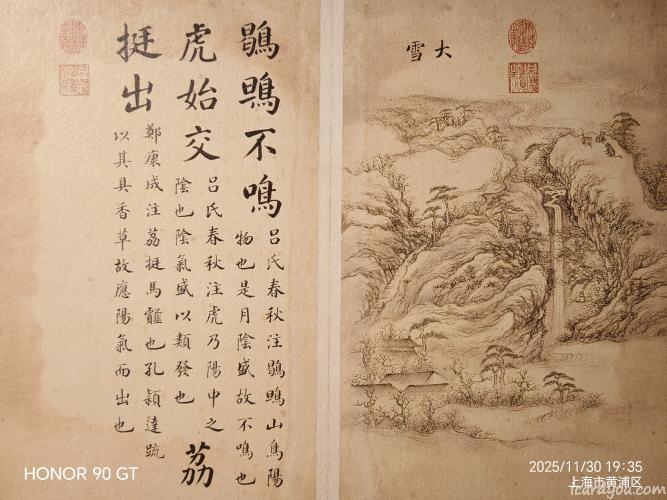 大雪
鶡鴠不鳴
呂氏春秋注鶡鴠山鳥陽
物也是月陰盛故不鳴也
虎始交
呂氏春秋注虎乃陽中之
陰也陰氣盛以類發也
荔
挺出
鄭康成注荔挺馬䪥也孔穎達疏
以其具香草故應陽氣而出也
HONOR 90 GT
2025/11/30 19:35
上海市黄浦区